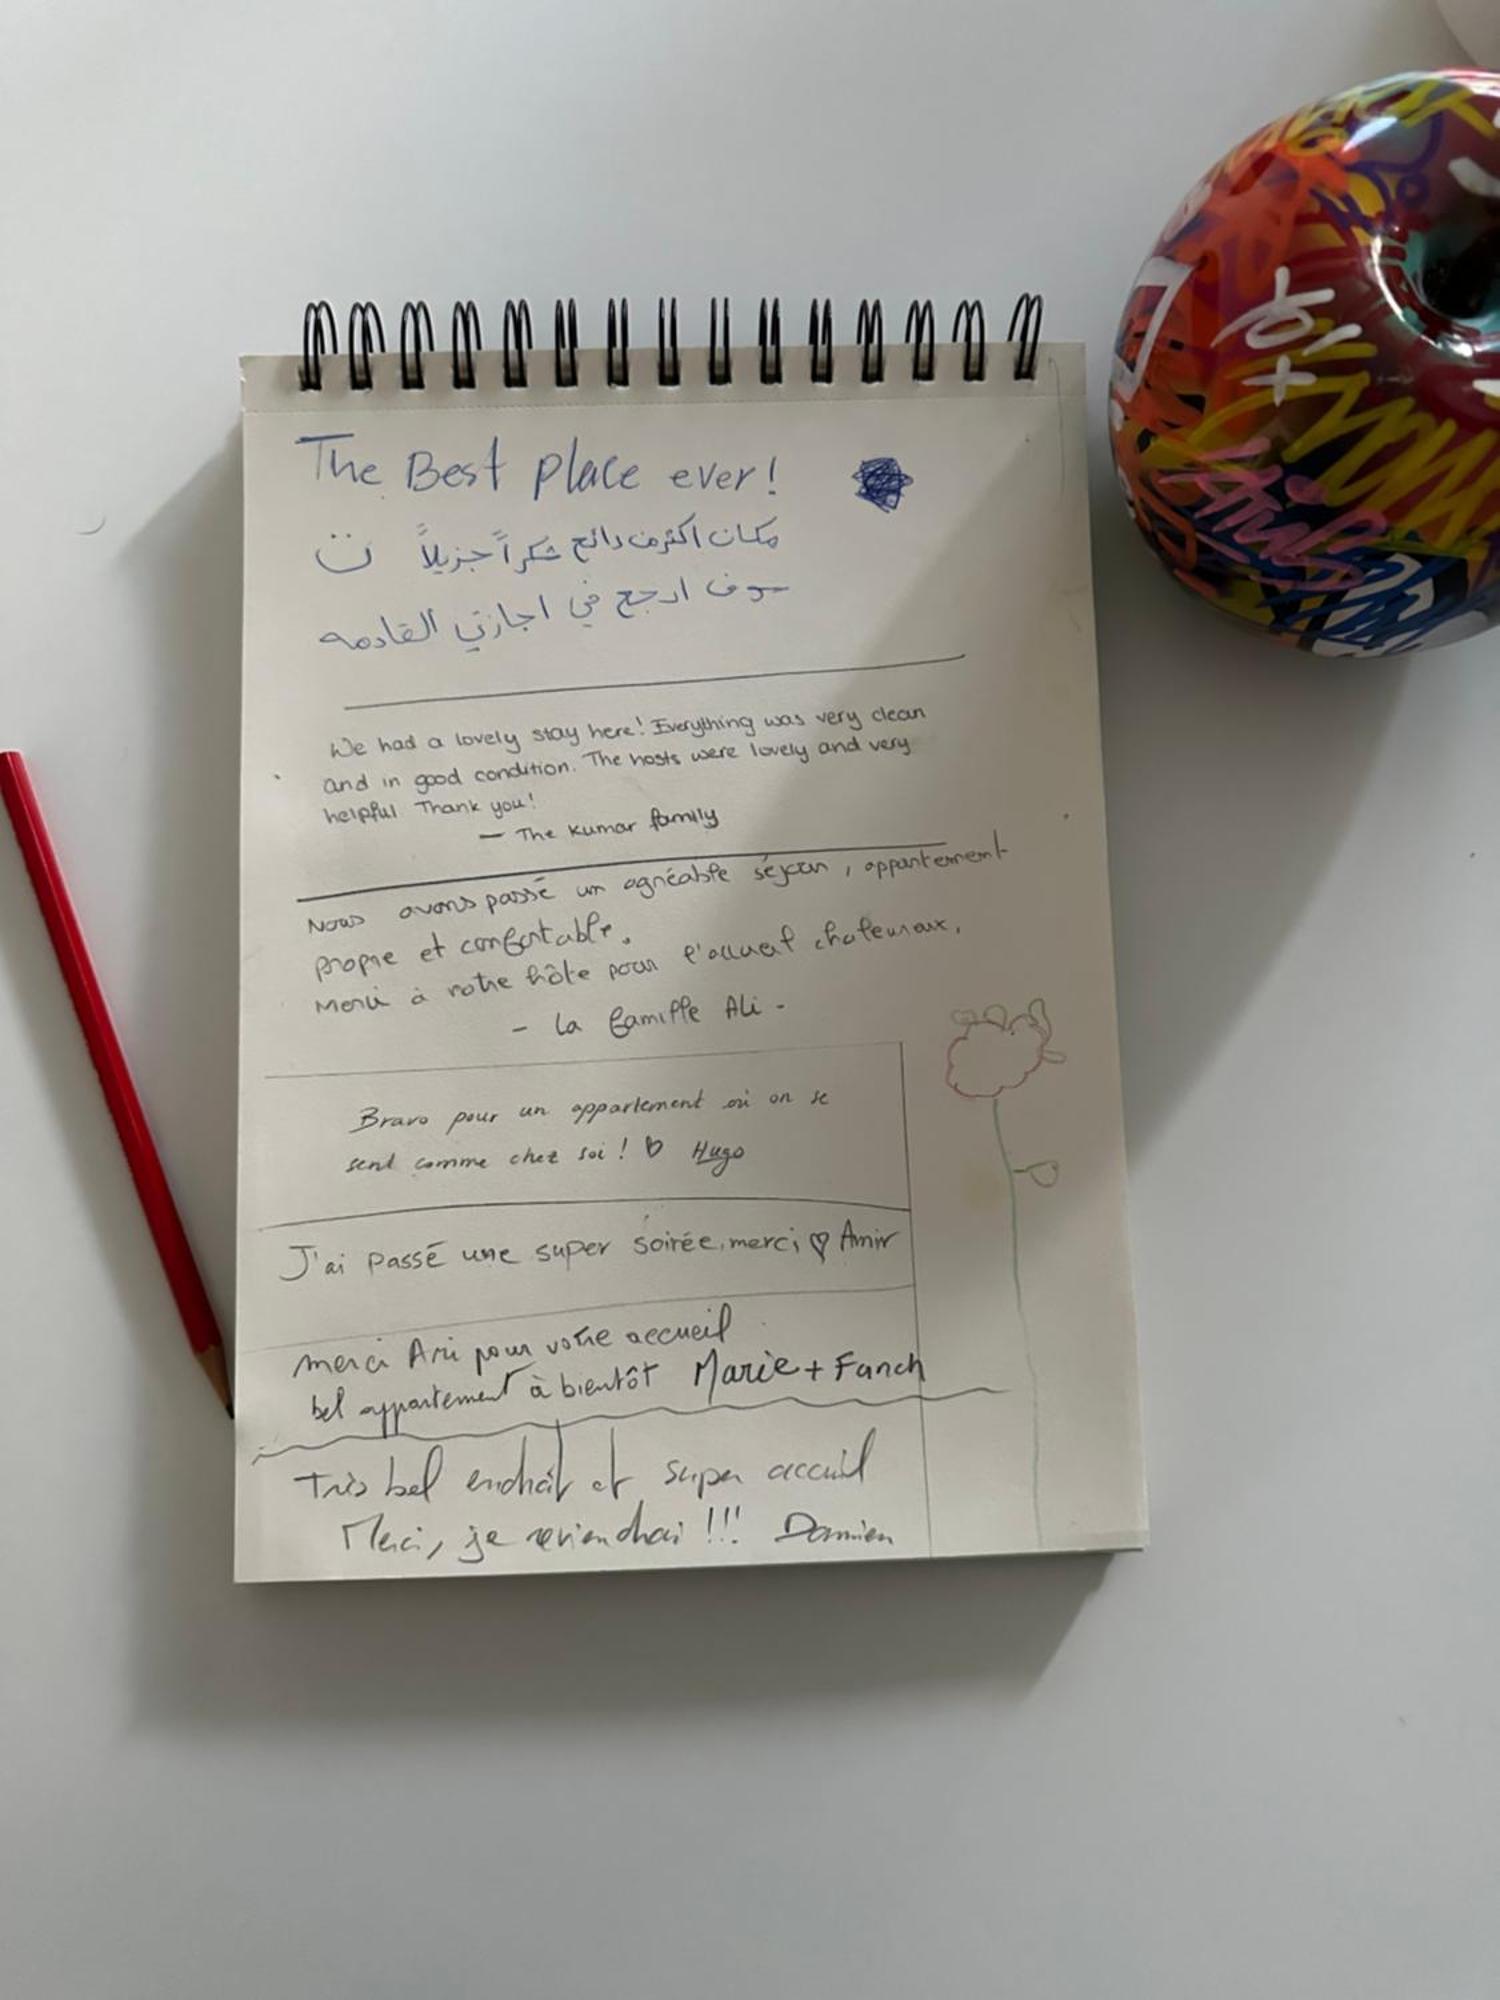 The Best place ever!
مكان اكثر من رائع شكراً جزيلاً
سوف ارجع في اجازتي القادمه
We had a lovely stay here! Everything was very clean
and in good condition. The hosts were lovely and very
helpful Thank you!
— The Kumar family
Nous avons passé un agréable séjour, appartement
propre et confortable.
Merci à notre hôte pour l'accueil chaleureux.
- La famille Ali -
Bravo pour un appartement où on se
sent comme chez soi ! ♡ Hugo
J'ai passé une super soirée, merci ♡ Amir
merci Ari pour votre accueil
bel appartement à bientôt Marie + Fanch
Très bel endroit et super accueil
Merci, je reviendrai !!! Damien